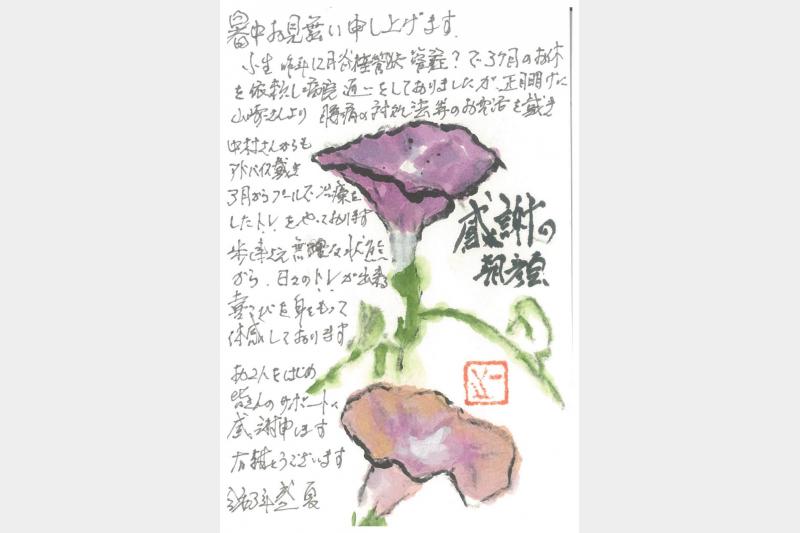 暑中お見舞い申し上げます.
小生 昨年12月脊柱管狭窄症?で3ケ月のお休
を依頼し病院通いをしておりましたが、正月明けに
山崎さんより 腰痛の対処法等のお電話を戴き
中村さんからも
アドバイス戴き
3月からプールで治療を
したり、トレをやっております
歩
無理な状態
から、日々のトレが出来る
喜びを身をもって
体感しております
お2人をはじめ
皆さんのサポートに
感謝申します
有難とうございます
盛夏
感謝の
朝顔